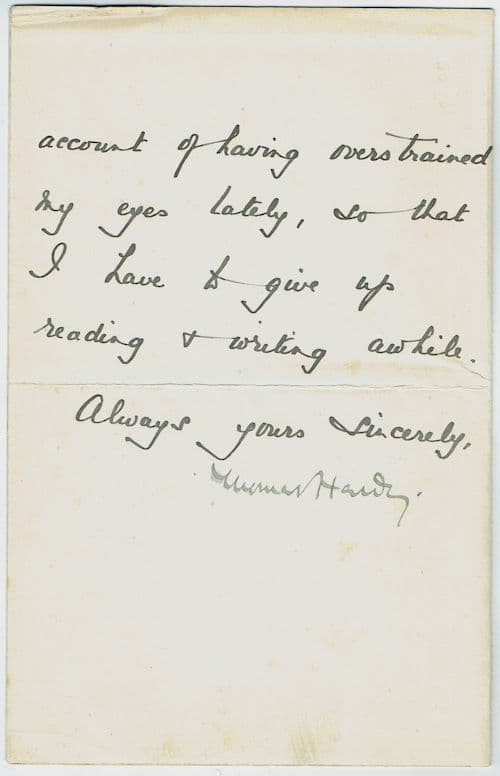 account of having overstrained
my eyes lately, so that
I have to give up
reading & writing awhile.
Always yours sincerely,
Thomas Hardy.